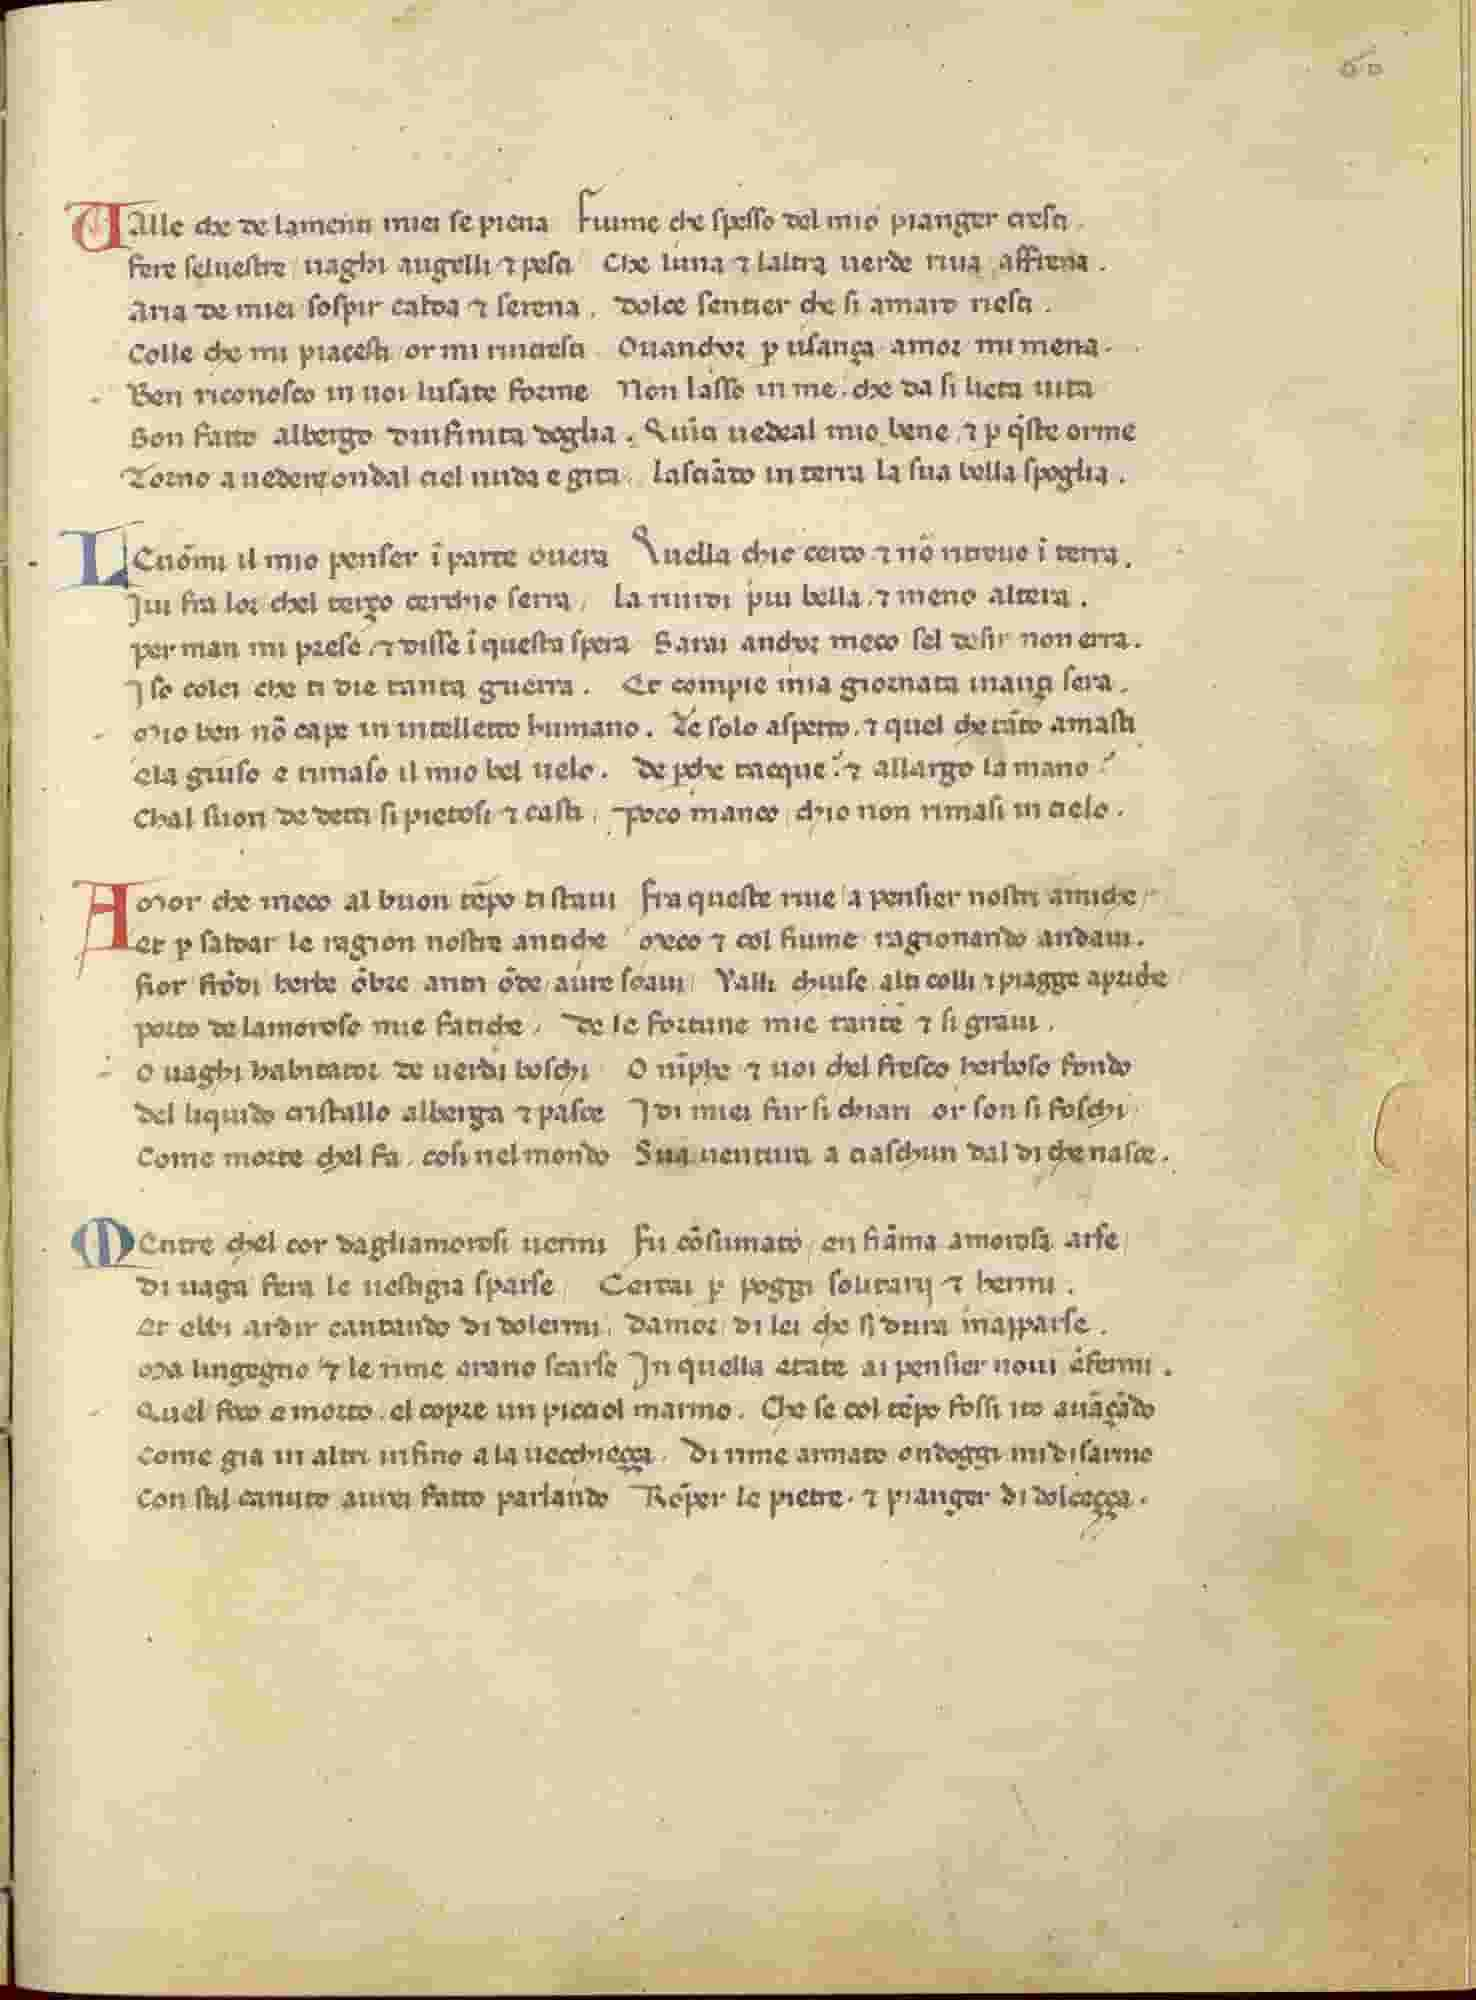 60
VAlle che de lamenti miei se piena Fiume che spesso del mio pianger cresci.
fere seluestre uaghi augelli ⁊ pesci Che luna ⁊ laltra uerde riua affrena.
Aria de miei sospir calda ⁊ serena. Dolce sentier che si amaro riesci.
Colle che mi piacesti or mi rincresci Ouandor p usança amor mi mena.
Ben riconosco in uoi lusate forme Non lasso in me. che da si lieta uita
Son fatto albergo dinfinita doglia. Quīci uedeal mio bene. ⁊ p q̄ste orme
Torno a ueder ondal ciel nuda e gita. lasciādo in terra la sua bella spoglia.
LEuōmi il mio penser ī parte ouera Quella chio cerco ⁊ nō ritrouo ī terra.
Jui fra lor chel terço cerchio serra, la riuidi piu bella. ⁊ meno altera.
per man mi prese, ⁊ disse ī questa spera Sarai andor meco sel desir non erra.
J so colei che ti die tanta guerra. Et compie mia giornata inançi sera.
Mio ben nō cape in intelletto humano. Te solo aspetto. ⁊ quel che tāto amasti
ela giuso e rimaso il mio bel uelo. De pche tacque? ⁊ allargo la mano?
Chal suon de detti si pietosi ⁊ casti, poco manco chio non rimasi in cielo.
AMor che meco al buon tēpo ti staui fra queste riue a pensier nostri amiche
et p saldar le ragion nostre antiche Meco ⁊ col fiume ragionando andaui.
fior frōdi herbe ōbre antri ōde aure soaui Valli chiuse alti colli ⁊ piagge apriche
porto de lamorose mie fatiche, De le fortune mie tante ⁊ si graui.
O uaghi habitator de uerdi boschi O nīphe ⁊ uoi chel fresco herboso fondo
del liquido cristallo alberga ⁊ pasce J di miei fur si chiari or son si foschi
Come morte chel fa. cosi nel mondo Sua uentura a ciaschun dal di che nasce.
MEntre chel cor dagliamorosi uermi fu cōsumato en fiāma amorosa arse
di uaga fera le uestigia sparse Cercai p poggi solitarij ⁊ hermi.
Et ebbi ardir cantando di dolermi, Damor di lei che si dura mapparse.
Ma lingegno ⁊ le rime erano scarse Jn quella etate ai pensier noui ēfermi.
Quel foco e morto. el copre un picciol marmo. Che se col tēpo fossi ito auāçādo
Come gia in altri infino a la uecchieçça. Di rime armato ondoggi mi disarmo
Con stil canuto aurei fatto parlando Rōper le pietre. ⁊ pianger di dolceçça.